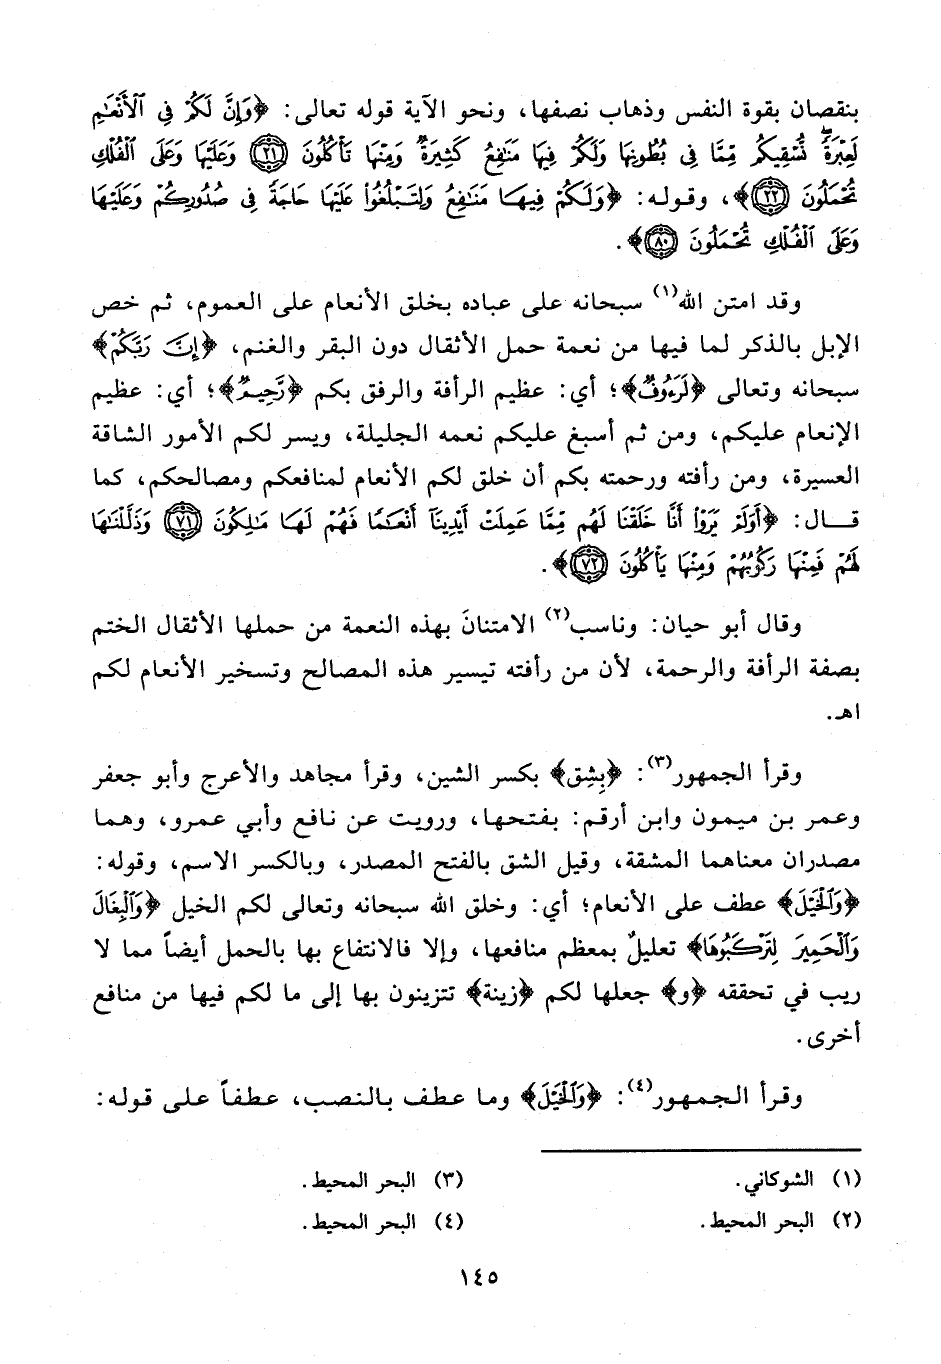 بنقصان بقوة النفس وذهاب نصفها، ونحو الآية قوله تعالى: ﴿وَإِنَّ لَكُمْ فِي ٱلْأَنْعَٰمِ
لَعِبْرَةً ۖ نُّسْقِيكُم مِّمَّا فِي بُطُونِهَا وَلَكُمْ فِيهَا مَنَٰفِعُ كَثِيرَةٌ وَمِنْهَا تَأْكُلُونَ ﴿٢١﴾ وَعَلَيْهَا وَعَلَى ٱلْفُلْكِ
تُحْمَلُونَ ﴿٢٢﴾﴾، وقوله: ﴿وَلَكُمْ فِيهَا مَنَٰفِعُ وَلِتَبْلُغُوا۟ عَلَيْهَا حَاجَةً فِي صُدُورِكُمْ وَعَلَيْهَا
وَعَلَى ٱلْفُلْكِ تُحْمَلُونَ ﴿٨٠﴾﴾.
وقد امتن الله(١) سبحانه على عباده بخلق الأنعام على العموم، ثم خص
الإبل بالذكر لما فيها من نعمة حمل الأثقال دون البقر والغنم، ﴿إِنَّ رَبَّكُمْ﴾
سبحانه وتعالى ﴿لَرَءُوفٌ﴾؛ أي: عظيم الرأفة والرفق بكم ﴿رَّحِيمٌ﴾؛ أي: عظيم
الإنعام عليكم، ومن ثم أسبغ عليكم نعمه الجليلة، ويسر لكم الأمور الشاقة
العسيرة، ومن رأفته ورحمته بكم أن خلق لكم الأنعام لمنافعكم ومصالحكم، كما
قـــال: ﴿أَوَلَمْ يَرَوْا۟ أَنَّا خَلَقْنَا لَهُم مِّمَّا عَمِلَتْ أَيْدِينَآ أَنْعَٰمًا فَهُمْ لَهَا مَٰلِكُونَ ﴿٧١﴾ وَذَلَّلْنَٰهَا
لَهُمْ فَمِنْهَا رَكُوبُهُمْ وَمِنْهَا يَأْكُلُونَ ﴿٧٢﴾﴾.
وقال أبو حيان: وناسب(٢) الامتنانَ بهذه النعمة من حملها الأثقال الختم
بصفة الرأفة والرحمة، لأن من رأفته تيسير هذه المصالح وتسخير الأنعام لكم
اهـ.
وقرأ الجمهور(٣): ﴿بِشِقِ﴾ بكسر الشين، وقرأ مجاهد والأعرج وأبو جعفر
وعمر بن ميمون وابن أرقم: بفتحها، ورويت عن نافع وأبي عمرو، وهما
مصدران معناهما المشقة، وقيل الشق بالفتح المصدر، وبالكسر الاسم، وقوله:
﴿وَٱلْخَيْلَ﴾ عطف على الأنعام؛ أي: وخلق الله سبحانه وتعالى لكم الخيل ﴿وَٱلْبِغَالَ
وَٱلْحَمِيرَ لِتَرْكَبُوهَا﴾ تعليلٌ بمعظم منافعها، وإلا فالانتفاع بها بالحمل أيضاً مما لا
ريب في تحققه ﴿و﴾ جعلها لكم ﴿زينة﴾ تتزينون بها إلى ما لكم فيها من منافع
أخرى.
وقرأ الجمهور(٤): ﴿وَٱلْخَيْلَ﴾ وما عطف بالنصب، عطفاً على قوله:
(١) الشوكاني.
(٢) البحر المحيط.
(٣) البحر المحيط.
(٤) البحر المحيط.
١٤٥